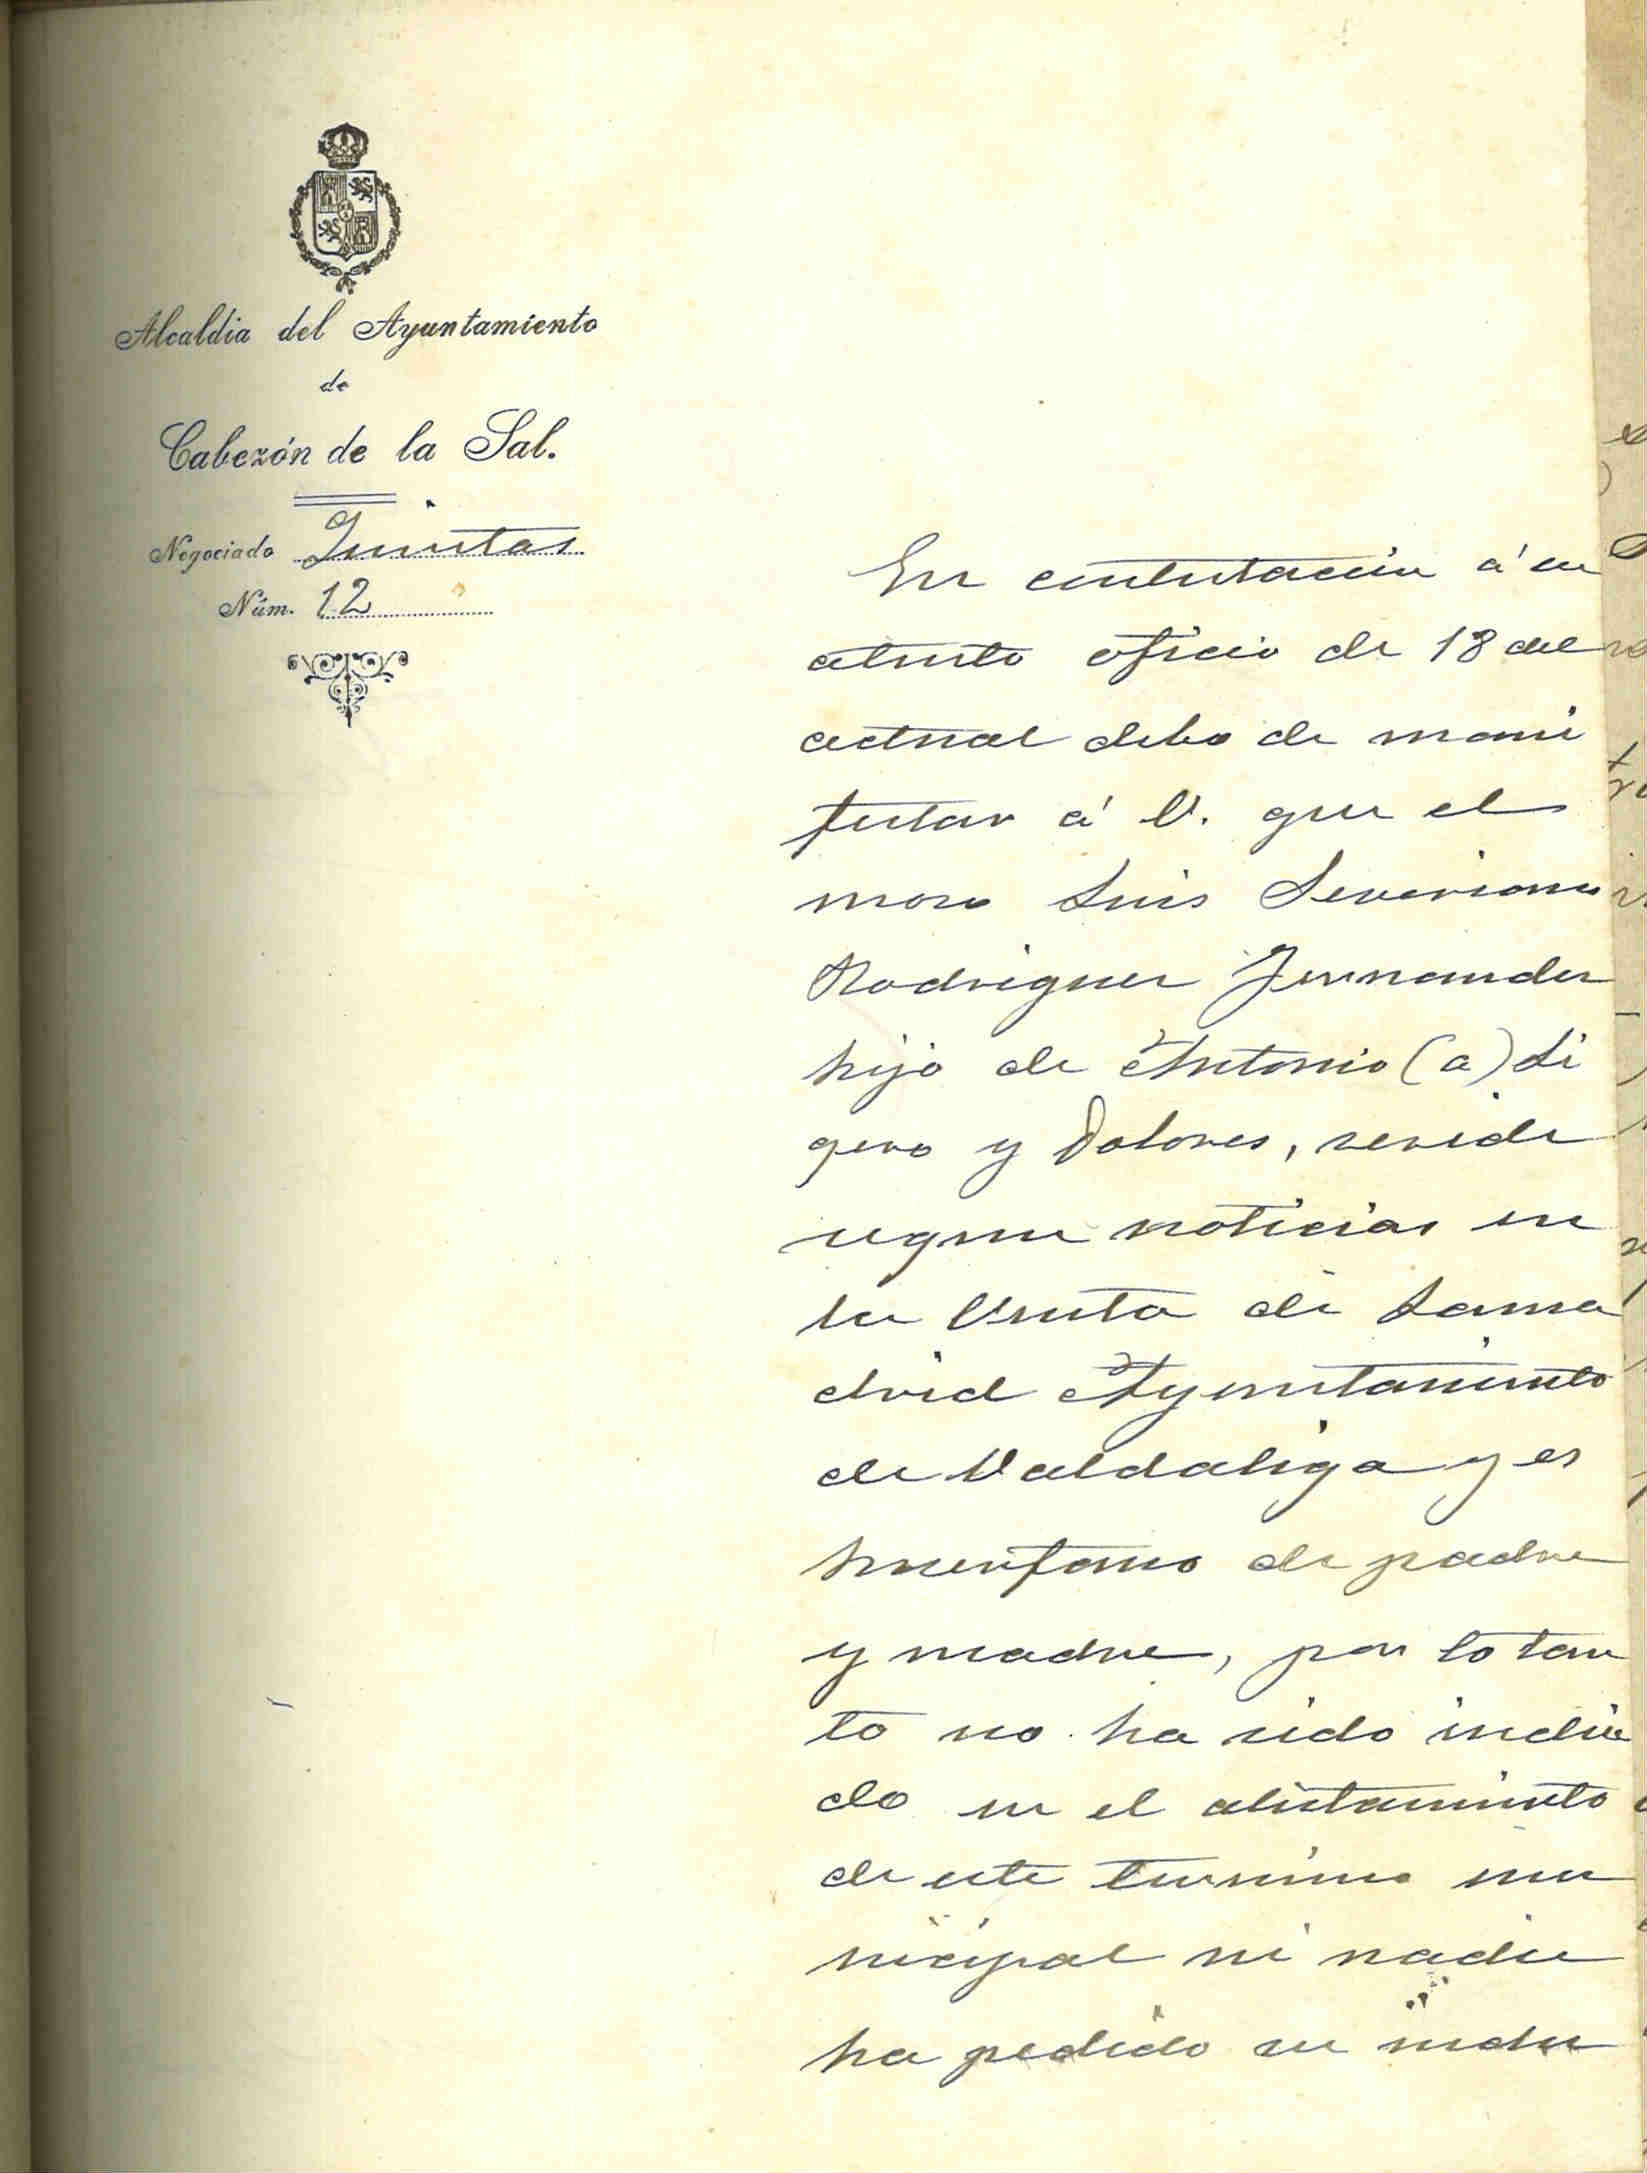 Alcaldia del Ayuntamiento
de
Cabezón de la Sal.
Negociado Quintas
Núm. 12
En contestacion á su
atento oficio de 18 del
actual debo de mani
festar á V. que el
mozo Luis Severiano
Rodriguez Fernandez
hijo de Antonio (a) Li
gero y Dolores, reside
segun noticias en
la Venta de Lama
drid Ayuntamiento
de Valdaliga y es
huerfano de padre
y madre, por lo tan
to no ha sido inclui
do en el alistamiento
de este termino mu
nicipal ni nadie
ha pedido su inclu